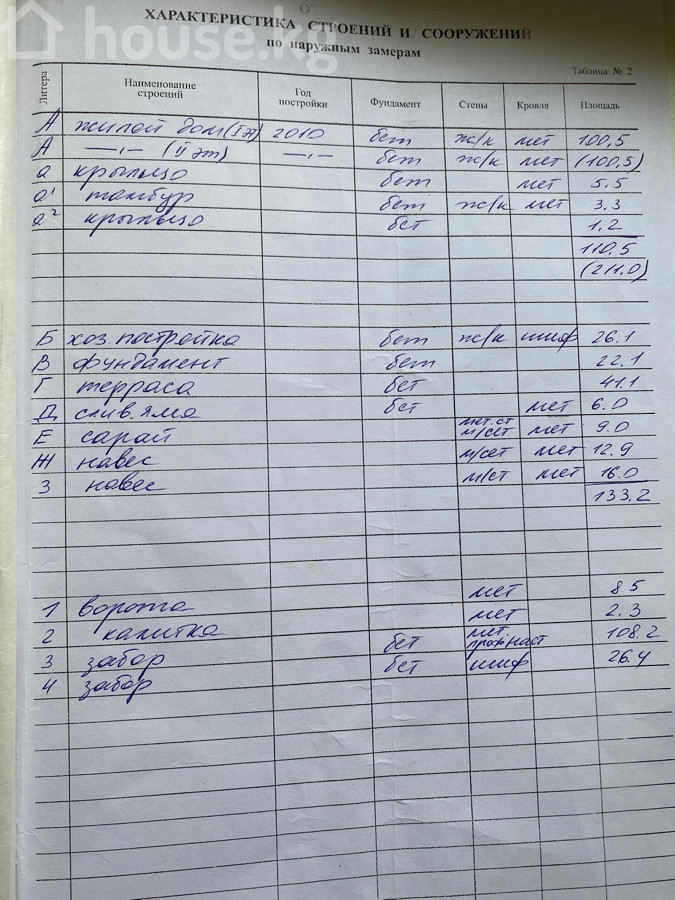 house.kg
ХАРАКТЕРИСТИКА СТРОЕНИЙ И СООРУЖЕНИЙ
по наружным замерам
Таблица № 2
Литера Наименование строений Год постройки Фундамент Стены Кровля Площадь
А жилой дом (I эт) 2010 бет ж/к мет 100,5
А —„— (II эт) —„— бет ж/к мет (100,5)
а крыльцо бет мет 5.5
а¹ тамбур бет ж/к мет 3,3
а² крыльцо бет 1,2
110,5
(211.0)
Б хоз. постройка бет ж/к шиф 26.1
В фундамент бет 22.1
Г терраса бет 41.1
Д слив. яма бет мет 6.0
Е сарай мет.ст м/сет мет 9.0
Ж навес м/сет мет 12.9
З навес м/ст мет 16.0
133,2
1 ворота мет 8.5
2 калитка мет 2.3
3 забор бет мет. профнаст 108.2
4 забор бет шиф 26.4